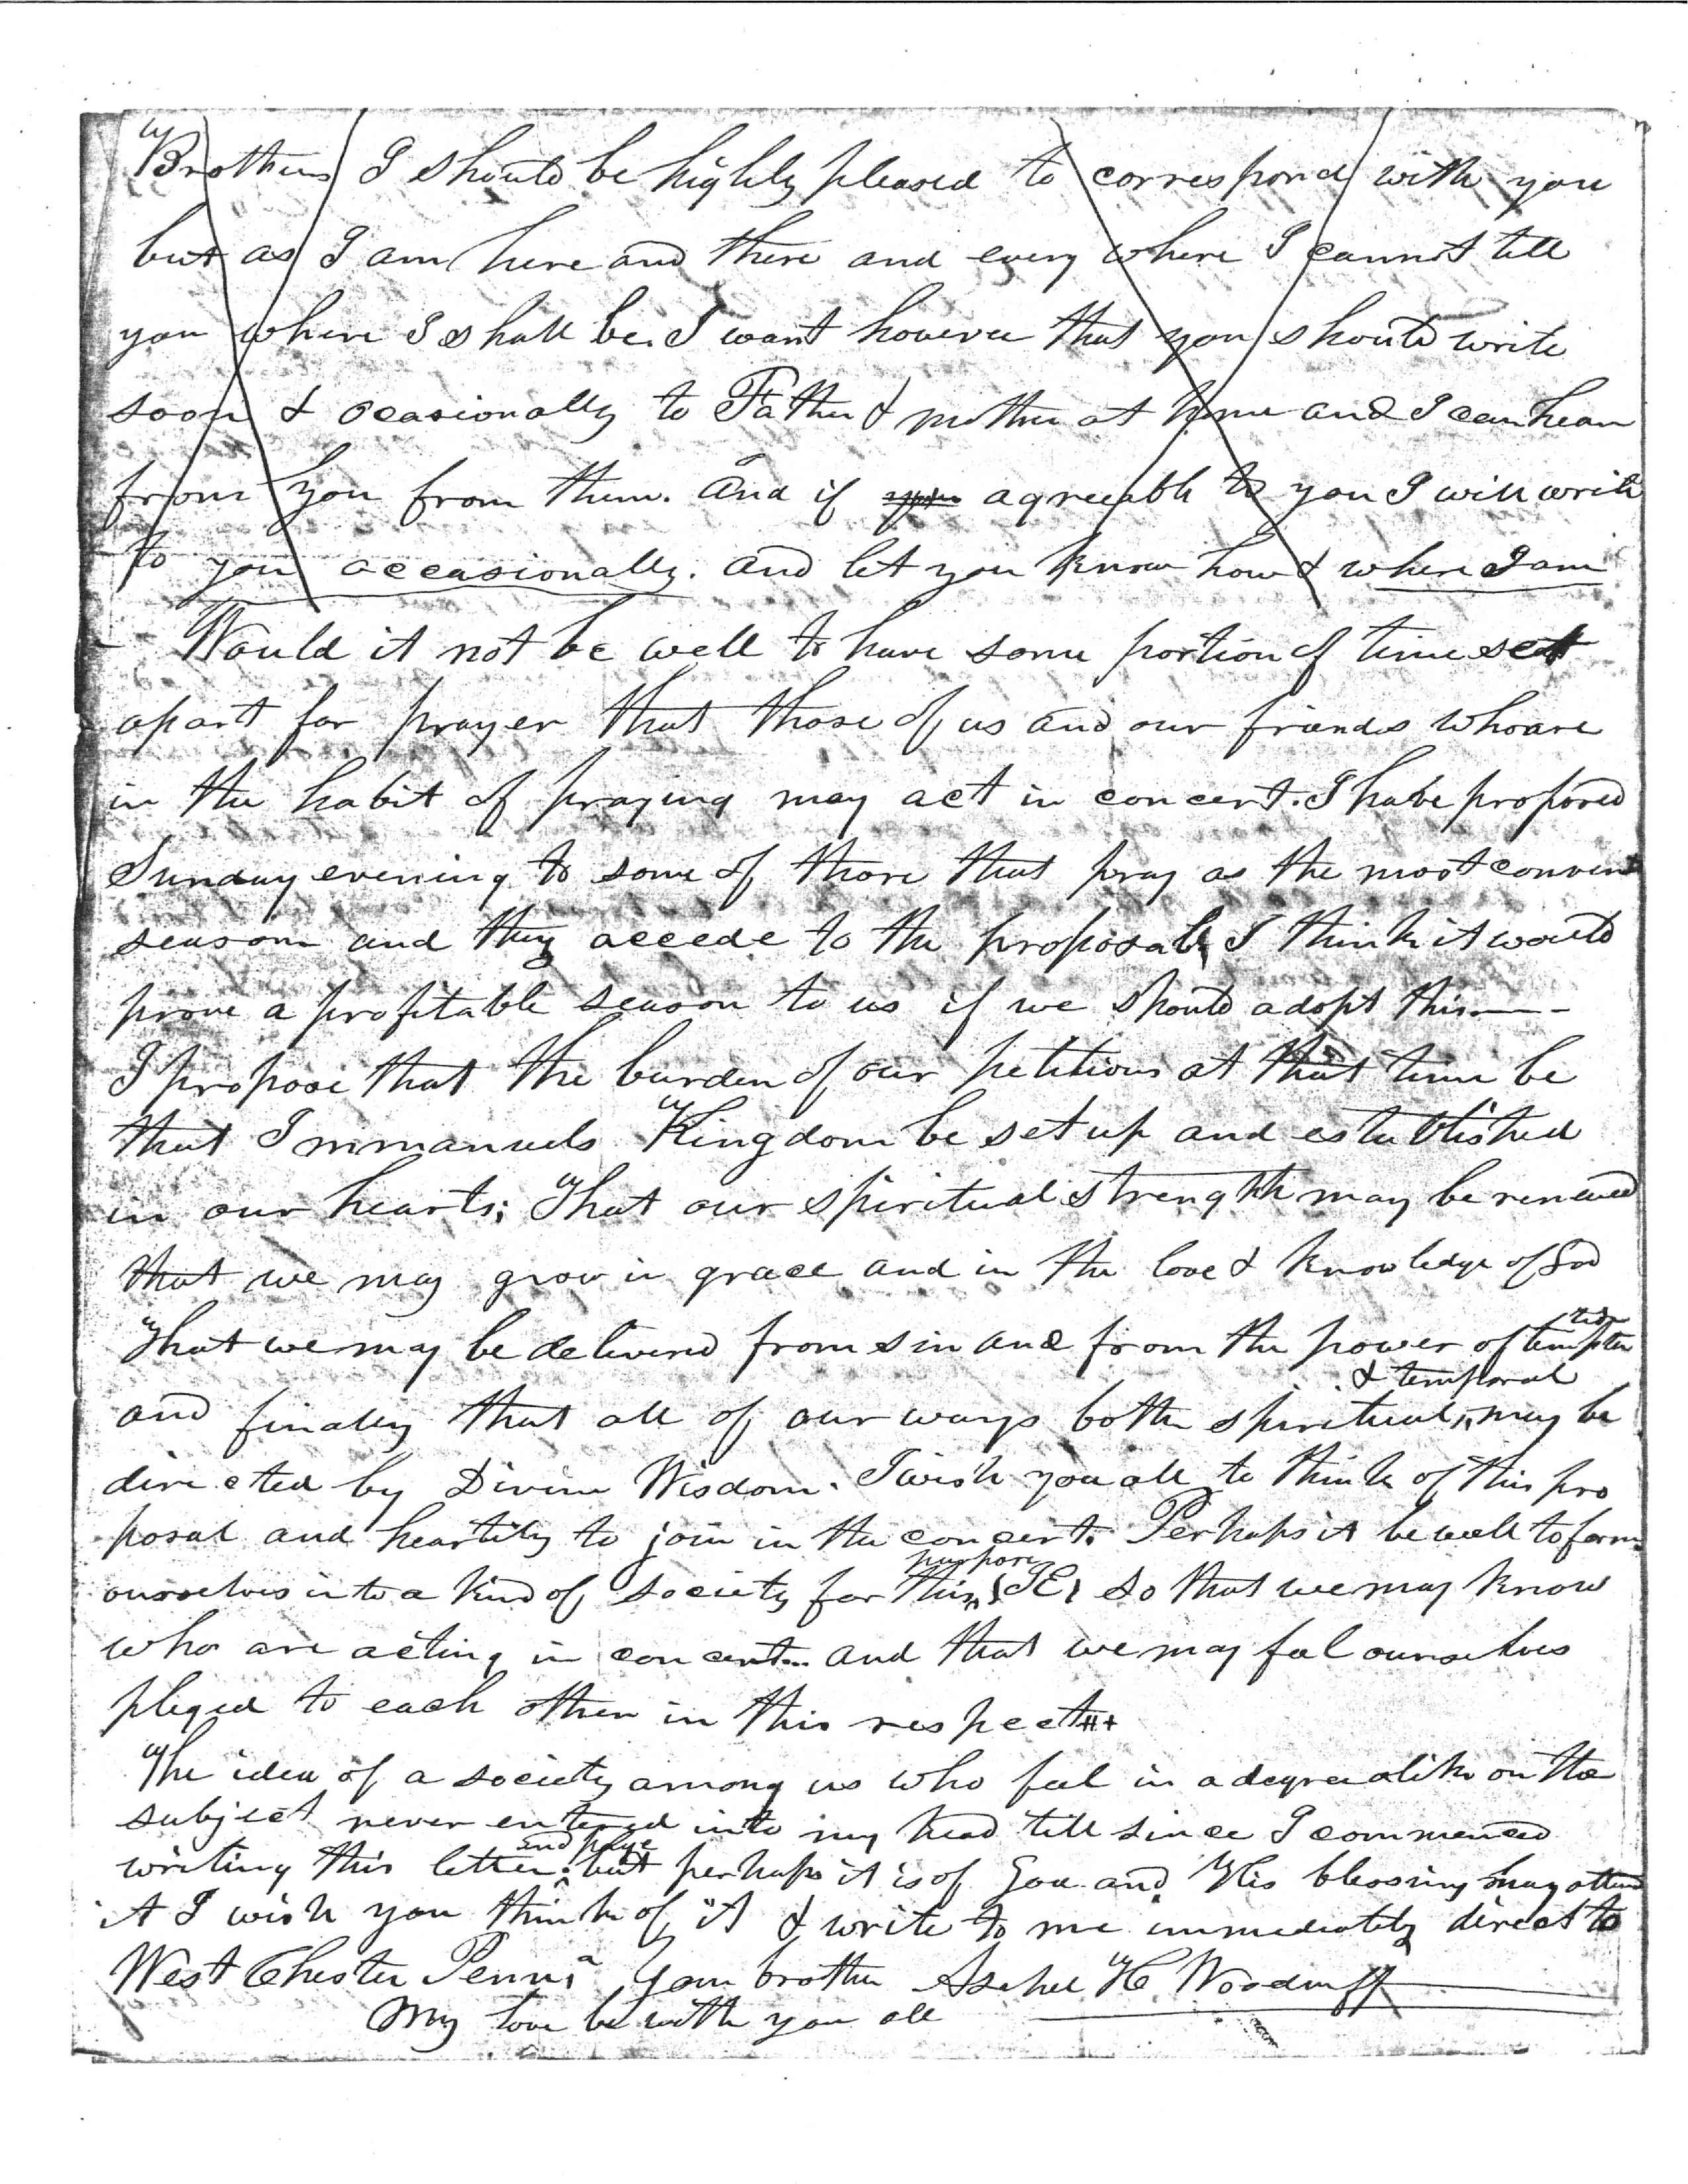 Brothers I should be highly pleased to correspond with you
but as I am here and there and every where I cannot tell
you where I shall be. I want however that you should write
soon & ocasionally to Father & mother at home and I can hear
from you from them. And if agreeable to you I will write
to you occasionally. and let you know how & where I am
Would it not be well to have some portion of time set
apart for prayer that those of us and our friends who are
in the habit of praying may act in concert. I have proposed
Sunday evening to some of those that pray as the most convent
season and they accede to the proposal, I think it would
prove a profitable season to us if we should adopt this——
I propose that the burden of our petitions at that time be
that Immanuels Kingdom be set up and established
in our hearts; That our spiritual strength may be renewed
that we may grow in grace and in the love & knowledge of God
That we may be delivered from sin and from the power of
& temporal
and finally that all of our ways both spiritual may be
directed by Divine Wisdom. I wish you all to think of this pro
posal and heartily to join in the concert. Perhaps it be well to form
purpose
ourselves into a kind of society for this so that we may know
who are acting in concert.. and that we may feel ourselves
pleged to each other in this respect
The idea of a society among us who feel in a degree alike on the
subject never entered into my head till since I commenced
writing this letter. but perhaps it is of God and His blessing may attend
it I wish you think of it & write to me immediately direct to
West Chester Penna Your brother Asahel H. Woodruff
My love be with you all